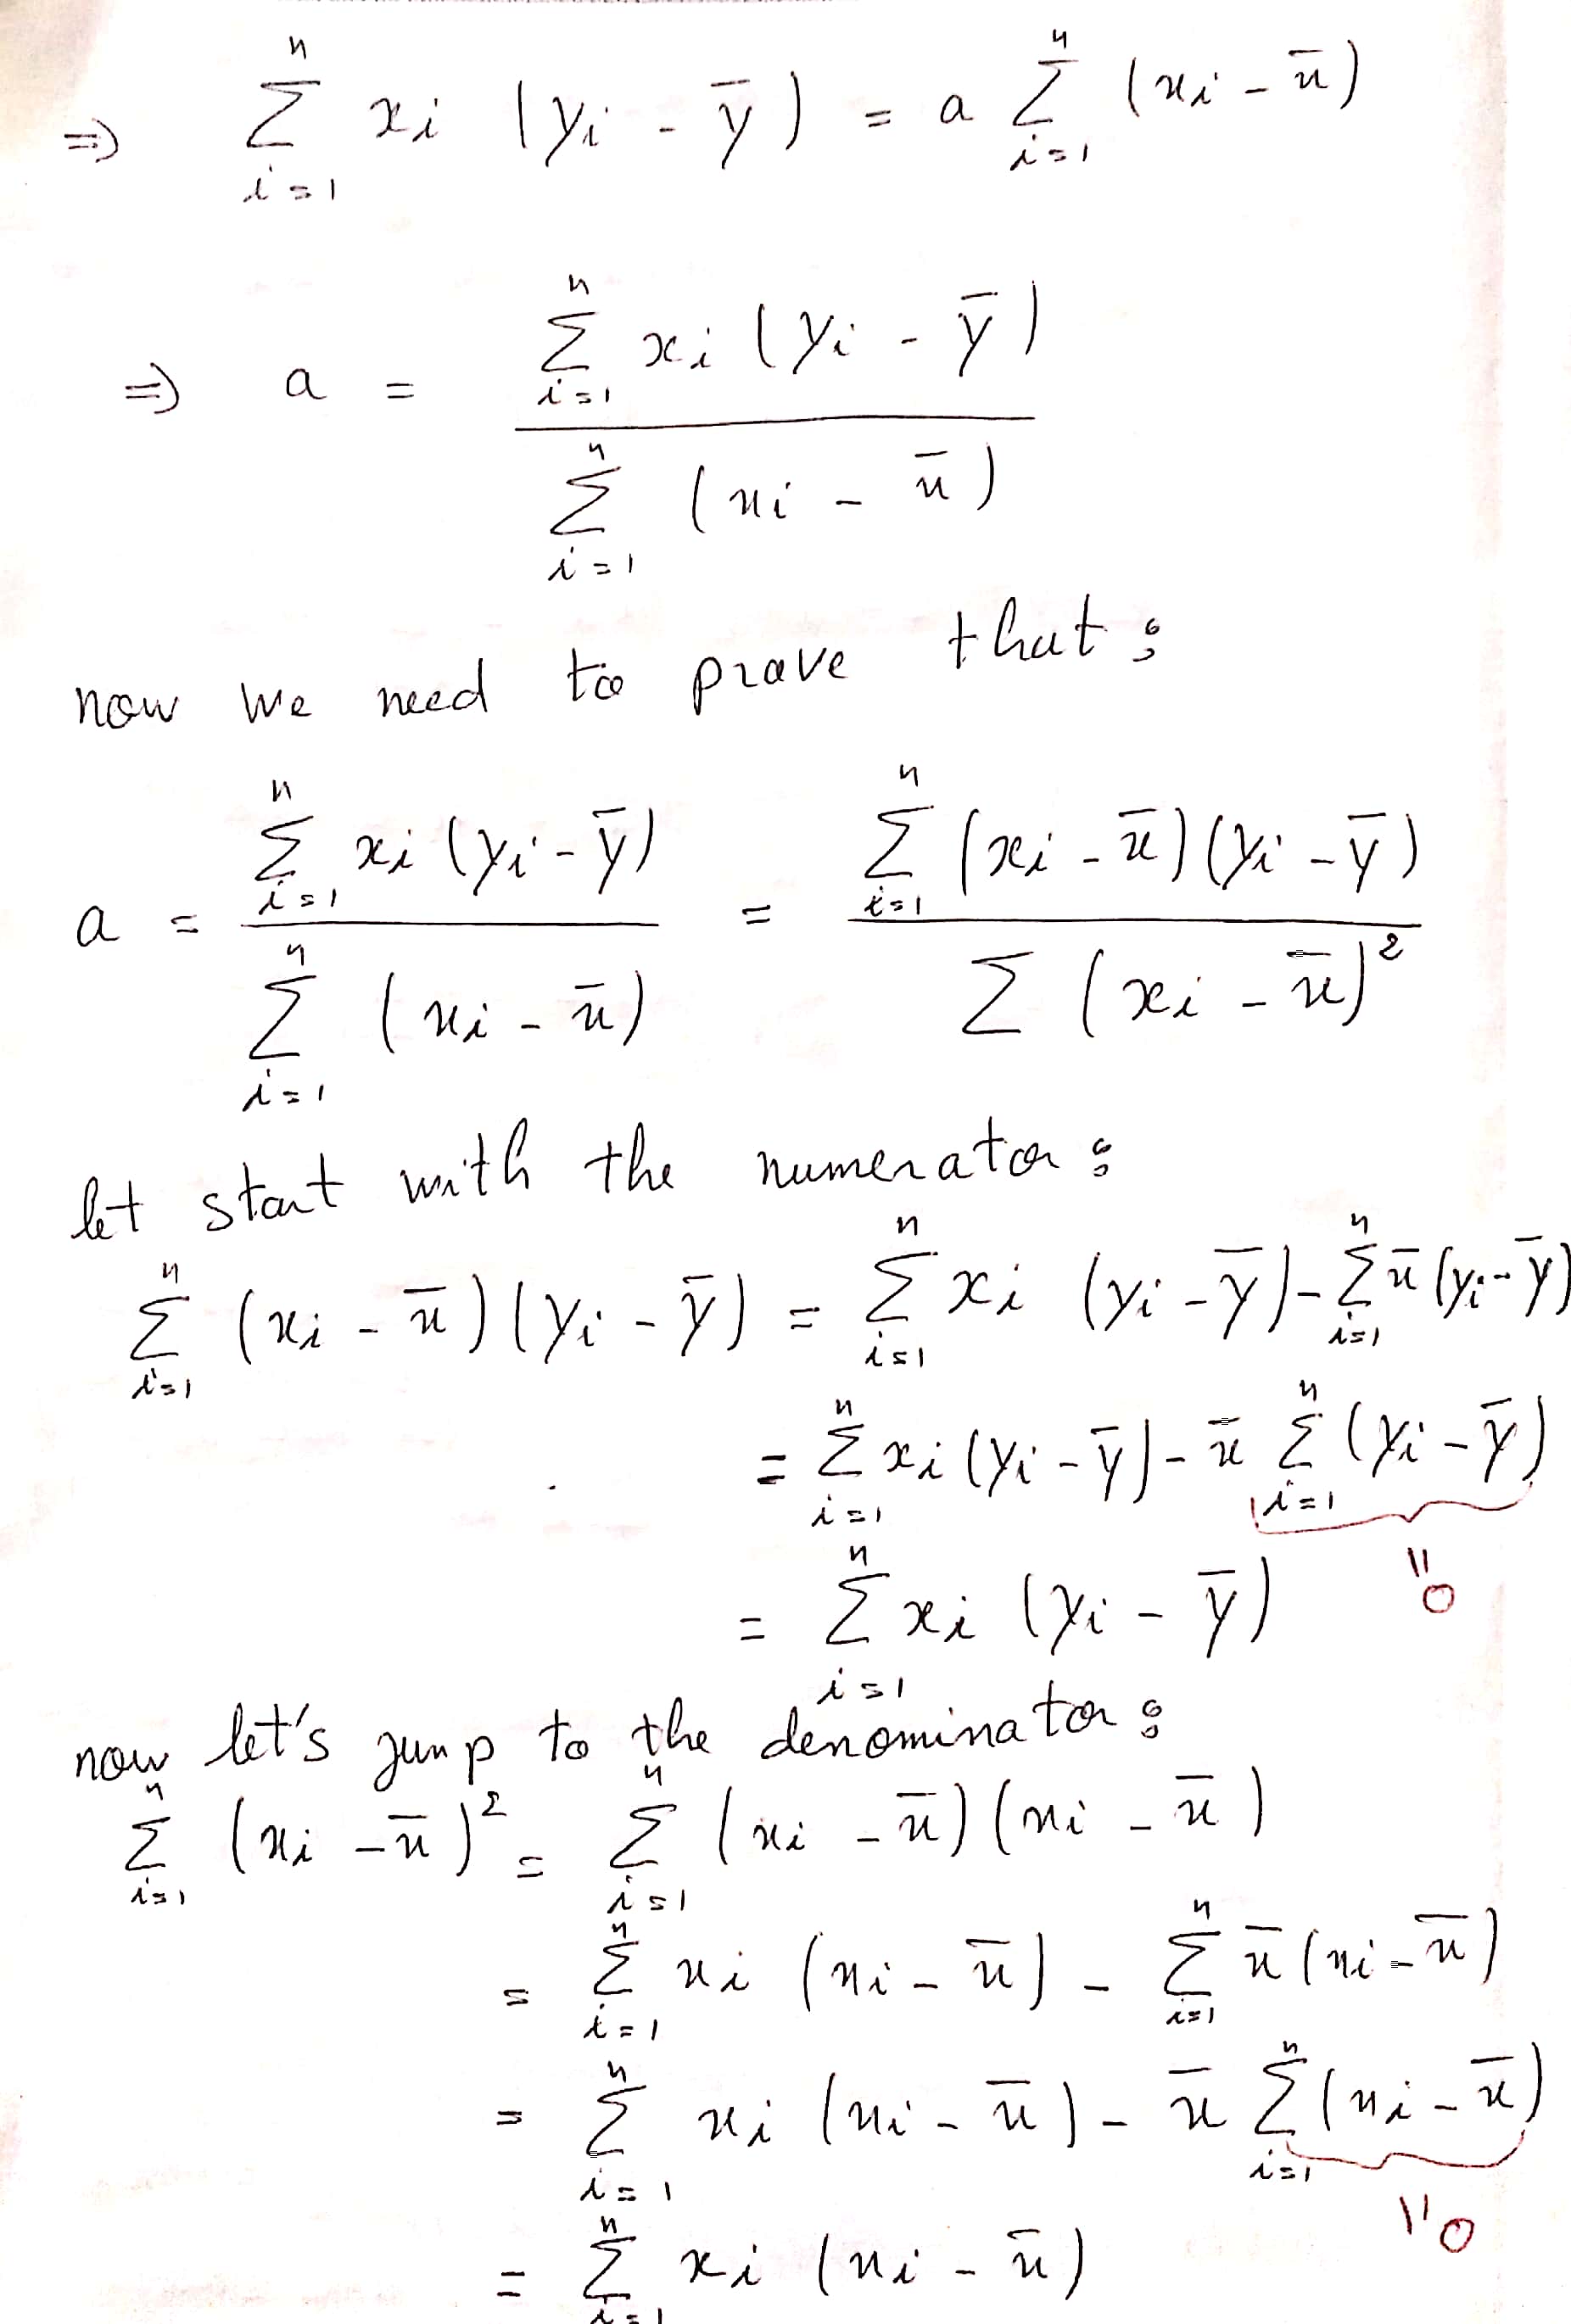 ⇒ ∑_{i=1}^{n} x_i (y_i - ȳ) = a ∑_{i=1}^{n} (x_i - x̄)
⇒ a = \frac{∑_{i=1}^{n} x_i (y_i - ȳ)}{∑_{i=1}^{n} (x_i - x̄)}
now we need to prove that :
a = \frac{∑_{i=1}^{n} x_i (y_i - ȳ)}{∑_{i=1}^{n} (x_i - x̄)} = \frac{∑_{i=1}^{n} (x_i - x̄)(y_i - ȳ)}{∑ (x_i - x̄)^2}
let start with the numerator :
∑_{i=1}^{n} (x_i - x̄)(y_i - ȳ) = ∑_{i=1}^{n} x_i (y_i - ȳ) - ∑_{i=1}^{n} x̄ (y_i - ȳ)
= ∑_{i=1}^{n} x_i (y_i - ȳ) - x̄ ∑_{i=1}^{n} (y_i - ȳ)
= 0
= ∑_{i=1}^{n} x_i (y_i - ȳ)
now let's jump to the denominator :
∑_{i=1}^{n} (x_i - x̄)^2 = ∑_{i=1}^{n} (x_i - x̄)(x_i - x̄)
= ∑_{i=1}^{n} x_i (x_i - x̄) - ∑_{i=1}^{n} x̄ (x_i - x̄)
= ∑_{i=1}^{n} x_i (x_i - x̄) - x̄ ∑_{i=1}^{n} (x_i - x̄)
= 0
= ∑_{i=1}^{n} x_i (x_i - x̄)